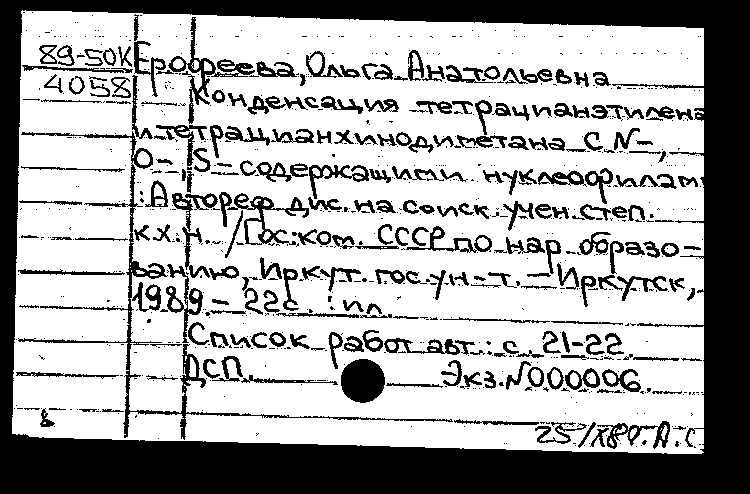 89-50К Ерофеева, Ольга Анатольевна
4058 Конденсация тетрацианэтилена
и тетрацианхинодиметана с N-,
О-, S-содержащими нуклеофилам
: Автореф. дис. на соиск. учен. степ.
к.х.н. /Гос. ком. СССР по нар. образо-
ванию, Иркут. гос. ун-т. – Иркутск,
1989. – 22 с. : ил.
Список работ авт.: с. 21-22.
ДСП. Экз. №000006.